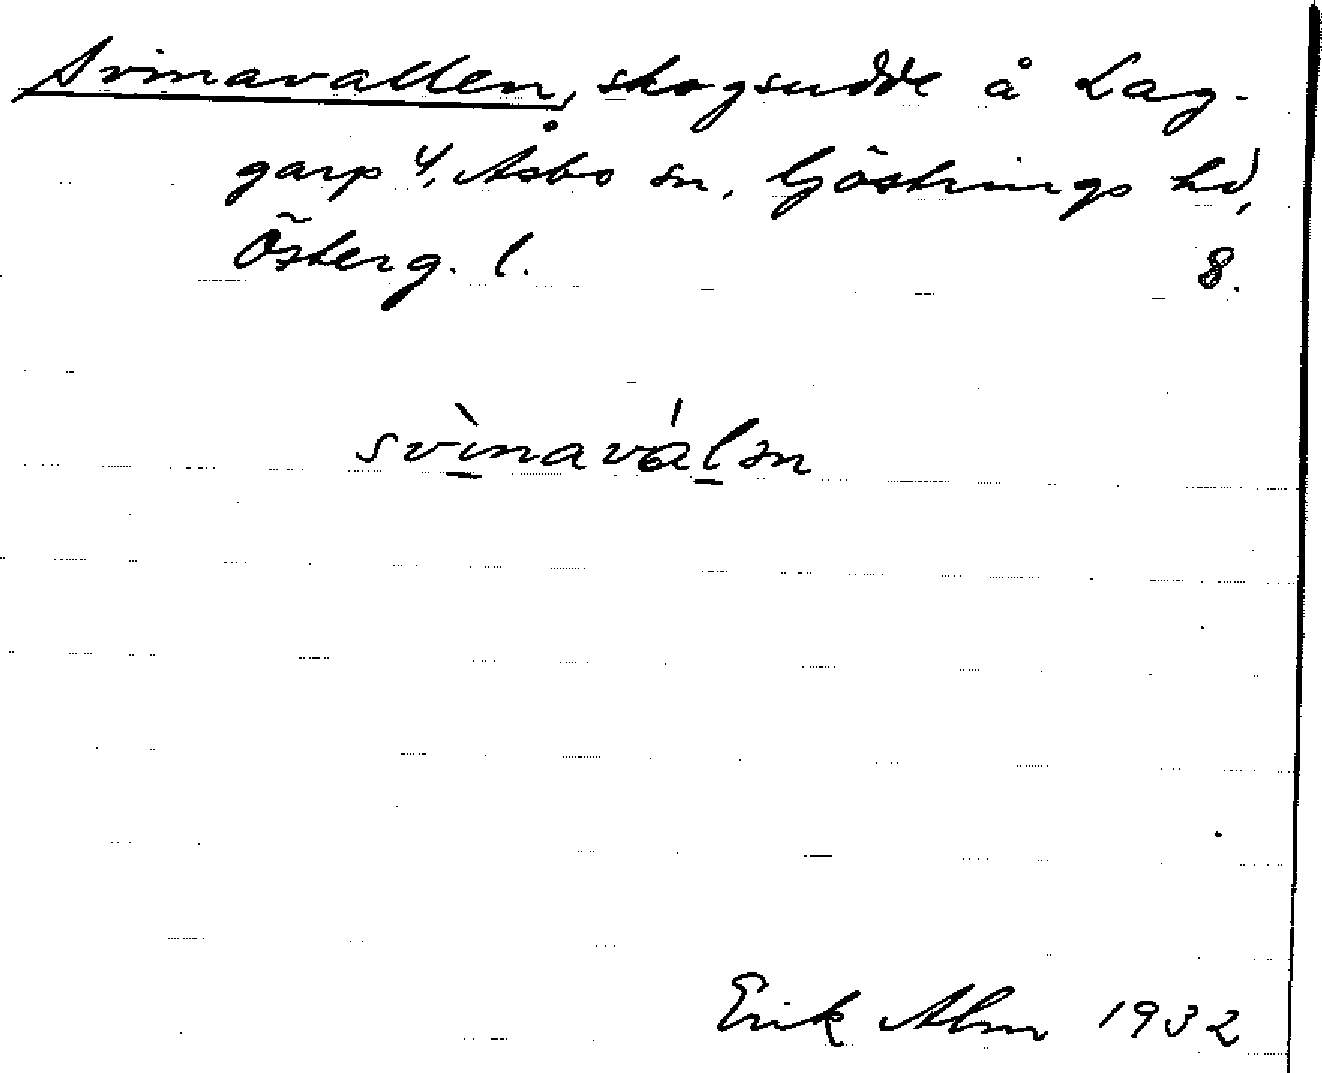 Svinavallen, skogsudde å Lag-
garp 4, Åsbo sn, Göstrings hd,
Österg. l. 8.
svìnaválən
Erik Alm 1932